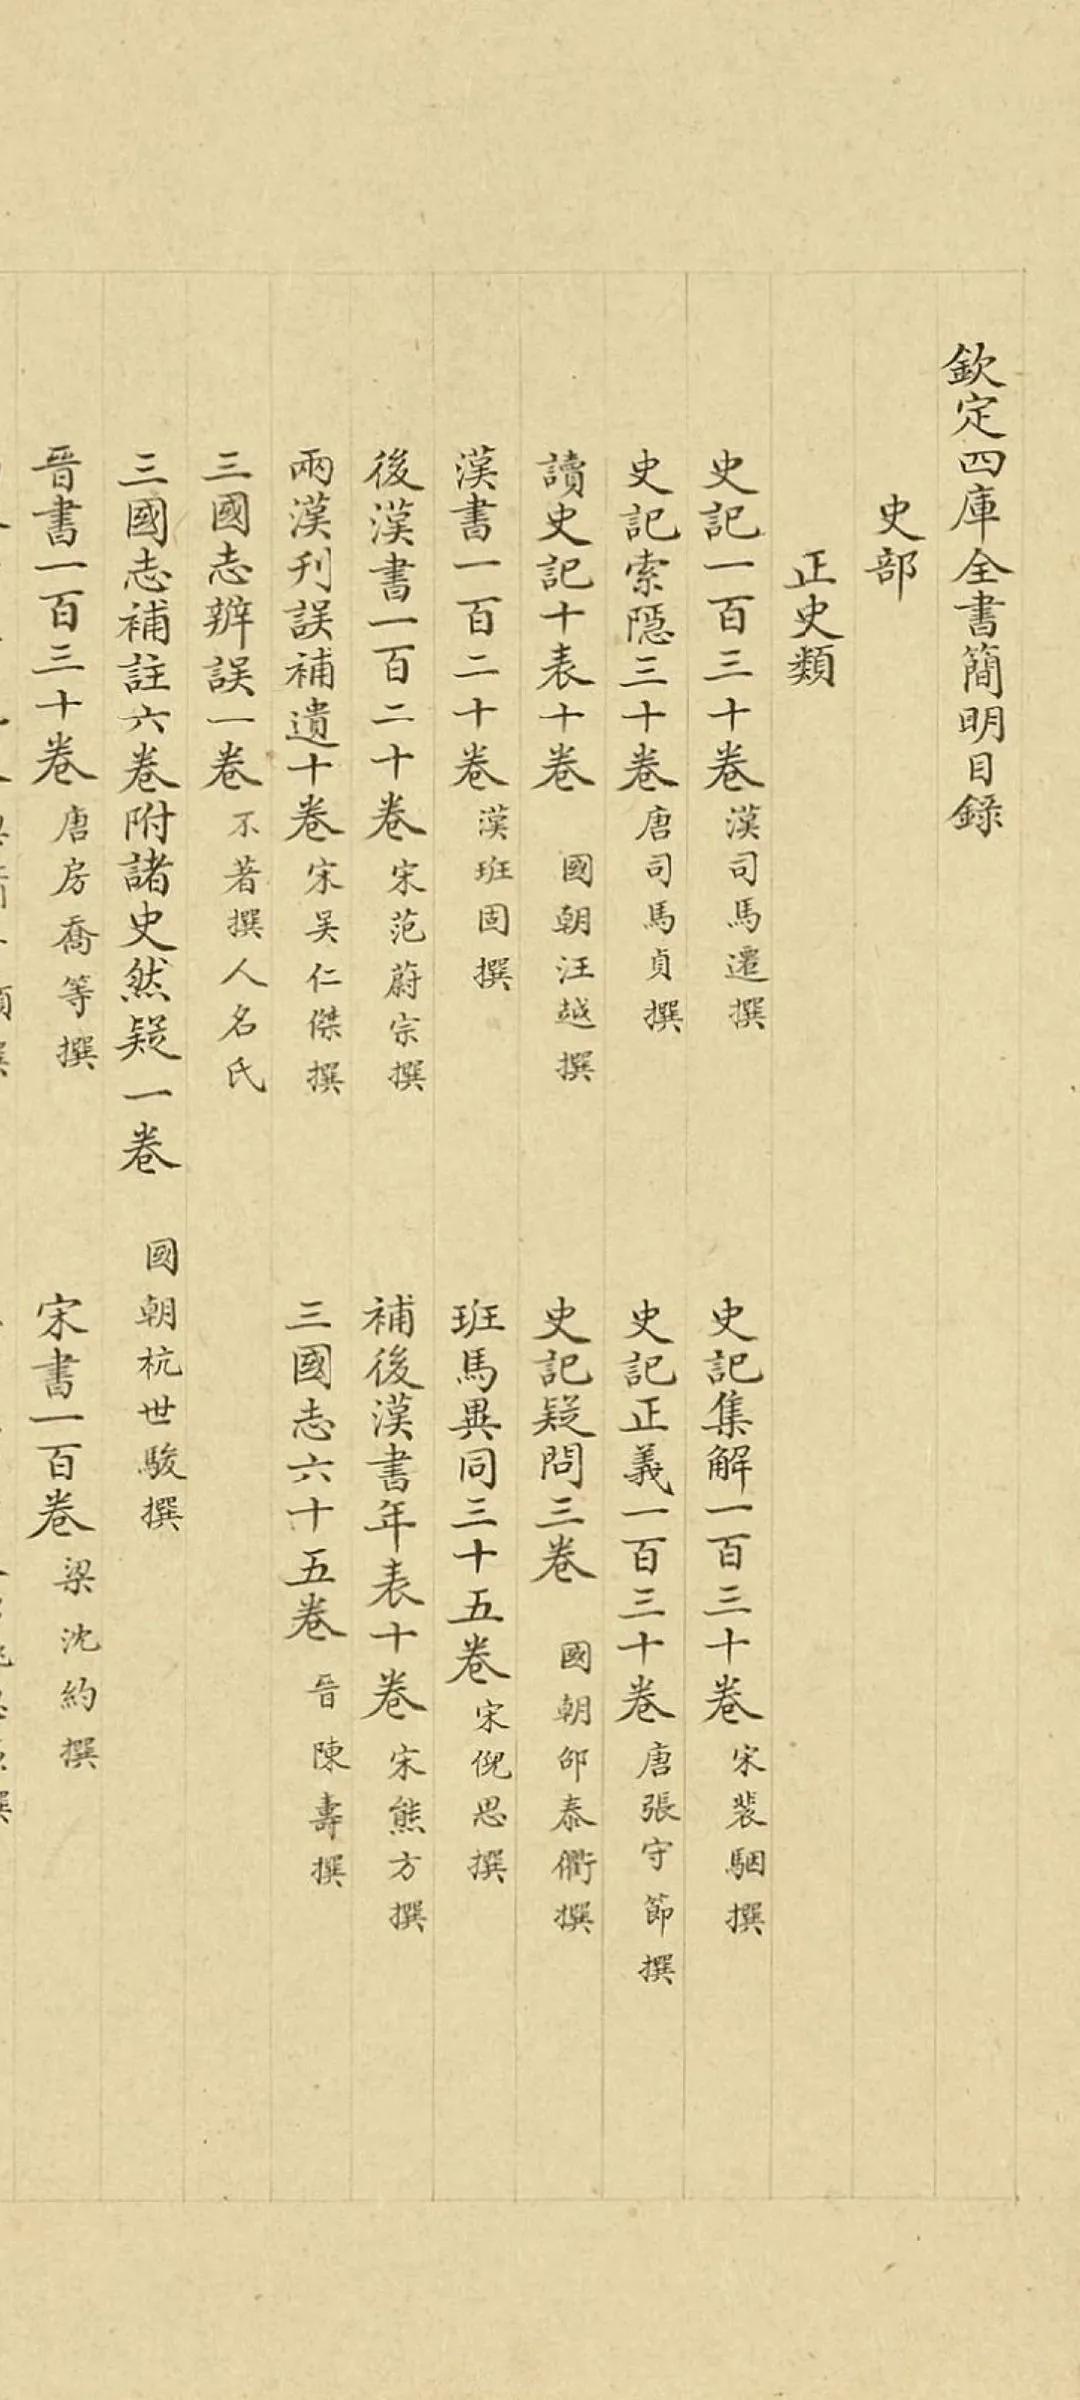 欽定四庫全書簡明目錄
史部
正史類
史記一百三十卷 漢司馬遷撰
史記集解一百三十卷 宋裴駰撰
史記索隱三十卷 唐司馬貞撰
史記正義一百三十卷 唐張守節撰
讀史記十表十卷 國朝汪越撰
史記疑問三卷 國朝邵泰衢撰
漢書一百二十卷 漢班固撰
班馬異同三十五卷 宋倪思撰
後漢書一百二十卷 宋范蔚宗撰
補後漢書年表十卷 宋熊方撰
兩漢刊誤補遺十卷 宋吳仁傑撰
三國志六十五卷 晉陳壽撰
三國志辨誤一卷 不著撰人名氏
三國志補註六卷附諸史然疑一卷 國朝杭世駿撰
晉書一百三十卷 唐房喬等撰
宋書一百卷 梁沈約撰